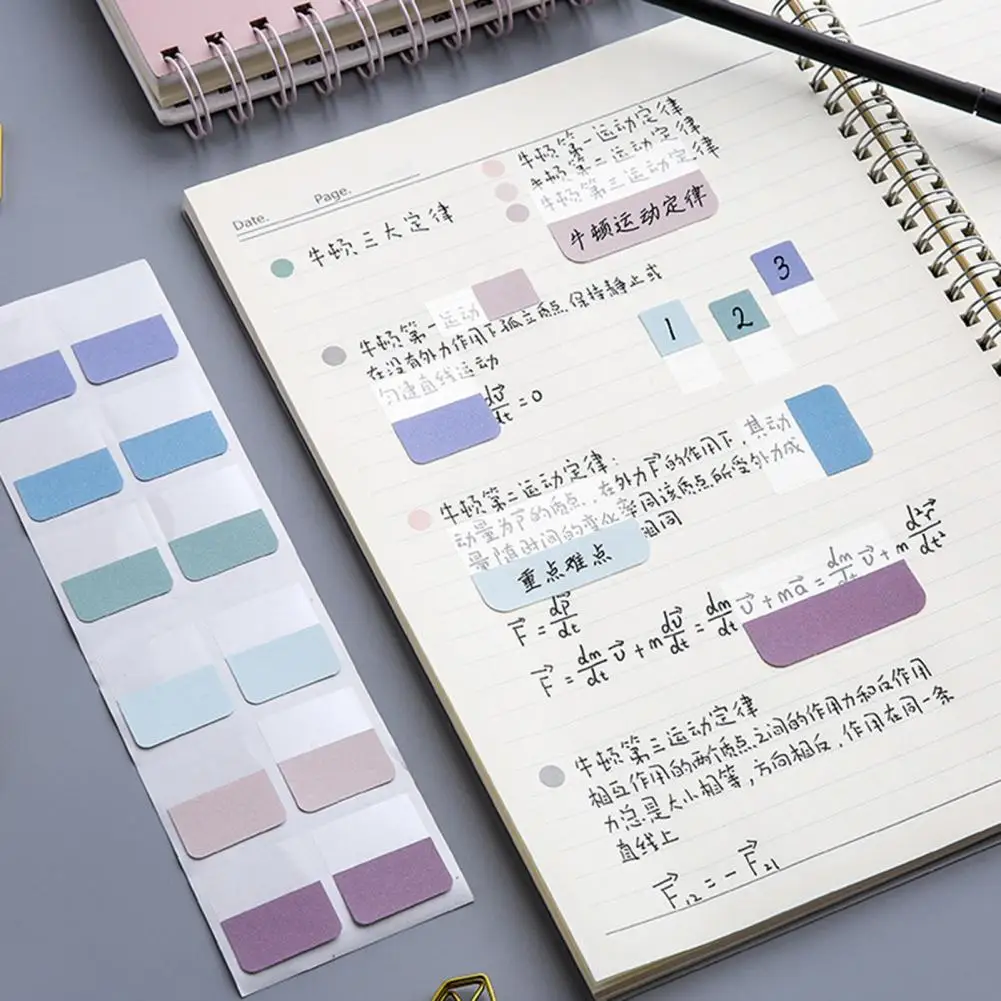 Date.
Page.
牛顿第一运动定律
牛顿第二运动定律
牛顿第三运动定律
牛顿运动定律
牛顿三大定律
牛顿第一运动
在没有外力作用下孤立质点保持静止或
匀速直线运动
dv⃗/dt = 0
1
2
3
牛顿第二运动定律:
动量为p⃗的质点,在外力F⃗的作用下,其动
量随时间的变化率同该质点所受外力成
相同
重点难点
F⃗ = dp⃗/dt
F⃗ = dm/dt v⃗ + m dv⃗/dt = dm/dt v⃗ + ma⃗ = dm/dt v⃗ + m d²r⃗/dt²
牛顿第三运动定律
相互作用的两个质点之间的作用力和反作用
力总是大小相等,方向相反,作用在同一条
直线上
F⃗₁₂ = -F⃗₂₁